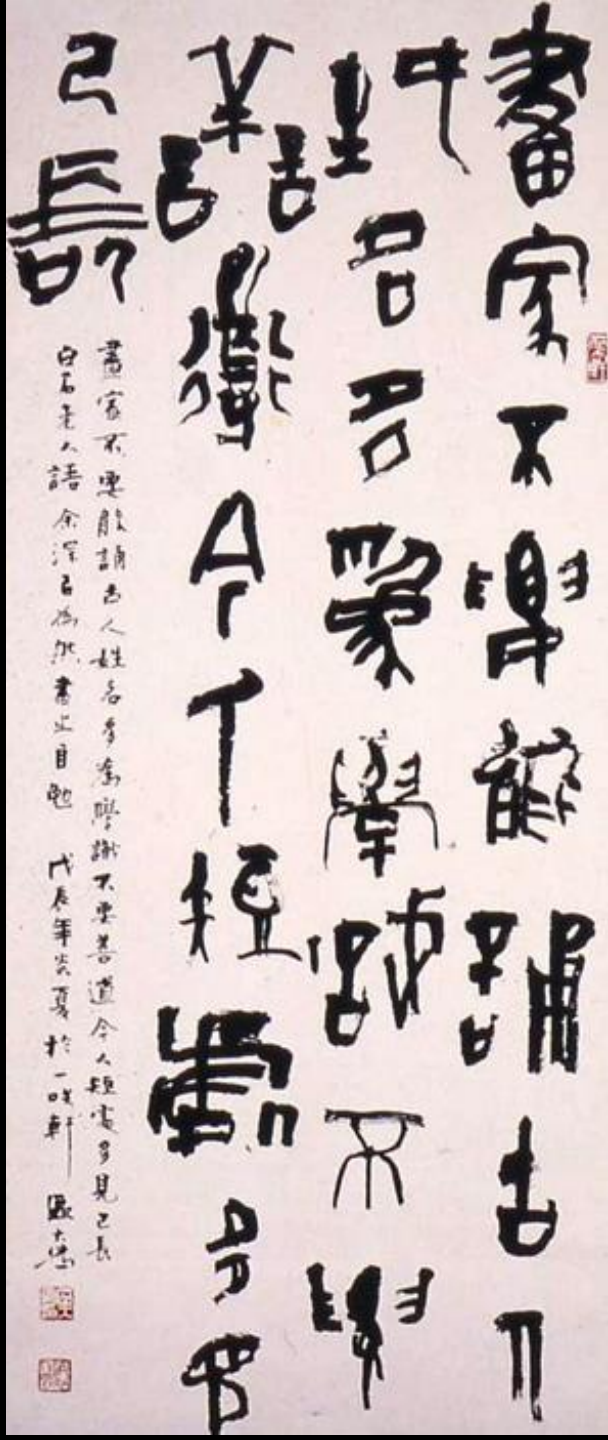 畫家不要能誦古人
姓名多為學識不要
善道今人短處多見
己長
畫家不要能誦古人姓名多為學識不要善道今人短處多見己長
白石老人語余深以為然書之自勉 戊辰年炎夏於一咲軒 區大為